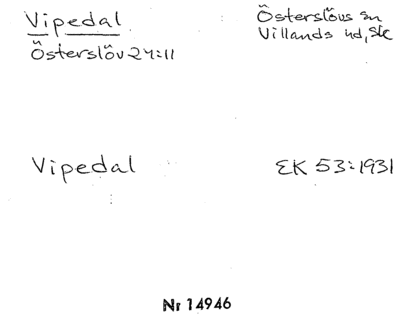 Vipedal
Österslövs sn
Villands hd, Sk
Österslöv 24:11
Vipedal
EK 53:1931
Nr 14946